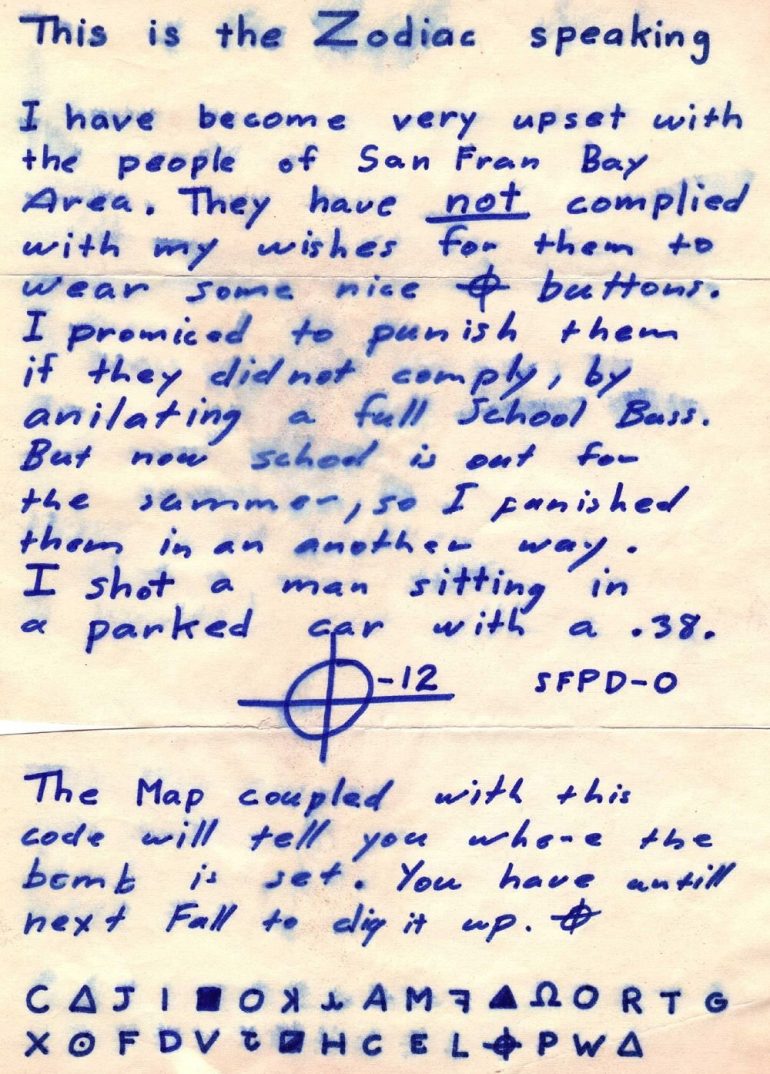 This is the Zodiac speaking
I have become very upset with
the people of San Fran Bay
Area. They have not complied
with my wishes for them to
wear some nice ⌖ buttons.
I promiced to punish them
if they did not comply, by
anilating a full School Buss.
But now school is out for
the summer, so I punished
them in an another way.
I shot a man sitting in
a parked car with a .38.
⌖-12 SFPD-0
The Map coupled with this
code will tell you where the
bomb is set. You have untill
next Fall to dig it up. ⌖
C Δ J I ■ O ꓘ ⅄ A M ꟻ ▲ Ω O R T G
X ⊙ F D V ⴠ ◪ H C E L ⌖ P W Δ